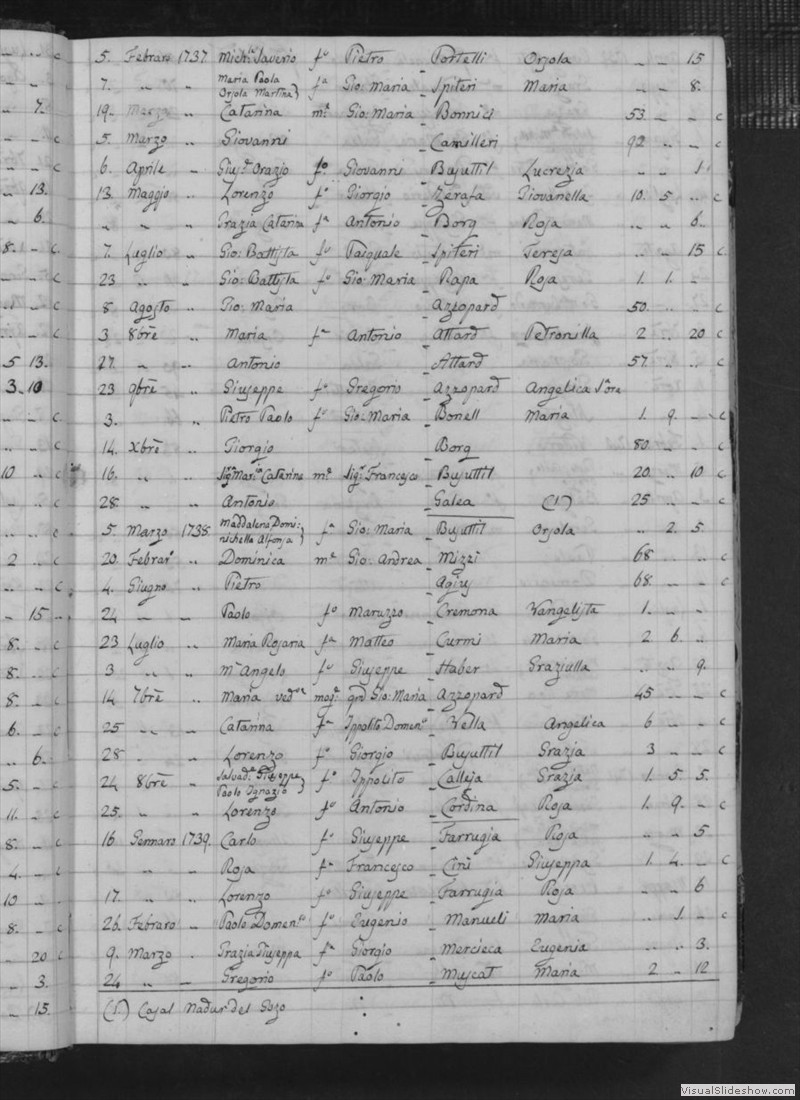 5. Febraro 1737. Mich.le Saverio f.o Pietro Portelli Orsola .. .. 15
7. .. .. Maria Paola Orsola Martina } f.a Gio: Maria Spiteri Maria .. .. 8.
19. Marzo .. Catarina m.e Gio: Maria Bonnici 53. .. .. c
5. Marzo .. Giovanni Camilleri 92 .. .. c
6. Aprile .. Gius.e Orazio f.o Giovanni Bujuttil Lucrezja .. .. 1
13. Maggio .. Lorenzo f.o Giorgio Zerafa Giovanella 10. 5 .. c
.. .. .. Grazia Catarina f.a Antonio Borg Rosa .. .. 6.
7. Luglio .. Gio: Battista f.o Pasquale Spiteri Teresa .. .. 15 c
23 .. .. Gio: Battista f.o Gio: Maria Rapa Rosa 1. 1. ..
8. Agosto .. Gio: Maria Azzopard 50. .. .. c
3 8bre .. Maria f.a Antonio Attard Petronilla 2 .. 20 c
27. .. .. Antonio Attard 57. .. .. c
23 9bre .. Giuseppe f.o Gregorio Azzopard Angelica
3. .. Pietro Paolo f.o Gio: Maria Bonell Maria 1. 9. .. c
14. Xbre .. Giorgio Borg 80 .. .. c
16. .. .. Sig.ra Mar.a Catarina m.e Sig.r Francesco Bujuttil 20 .. 10 c
28. .. .. Antonio Galea (1) 25 .. .. c
5. Marzo 1738. Maddalena Domi: nichella Alfonsa } f.a Gio: Maria Bujuttil Orsola .. 2. 5.
20. Febrar.o .. Dominica m.e Gio: Andrea Mizzi 68. .. .. c
4. Giugno .. Pietro Agius 68. .. .. c
24 .. .. Paolo f.o Maruzzo Cremona Vangelista 1. .. ..
23 Luglio .. Maria Rosaria f.a Matteo Curmi Maria 2 6. ..
3 .. .. M. Angelo f.o Giuseppe Haber Graziulla .. .. 9.
14 7bre .. Maria ved.a mog.e qd Gio: Maria Azzopard 45 .. .. c
25 .. .. Catarina f.a Ippolito Domen.o Vella Angelica 6 .. .. c
28 .. .. Lorenzo f.o Giorgio Bujuttil Grazja 3 .. .. c
24 8bre .. Salvad.e Giuseppe Paolo Ignazio } f.o Ippolito Calleja Grazja 1. 5. 5.
25. .. .. Lorenzo f.o Antonio Cordina Rosa 1. 9. .. c
16 Gennaro 1739. Carlo f.o Giuseppe Farrugia Rosa .. .. 5
.. .. Rosa f.a Francesco Cini Giuseppa 1. 4. .. c
17. .. .. Lorenzo f.o Giuseppe Farrugia Rosa .. .. 6
26. Febraro .. Paolo Domen.o f.o Eugenio Manueli Maria .. 1. .. c
9. Marzo .. Grazia Giuseppa f.a Giorgio Mercieca Eugenia .. .. 3.
24 .. .. Gregorio f.o Paolo Muscat Maria 2 .. 12
(1.) Casal Nadur del Gozo
VisualSlideshow.com